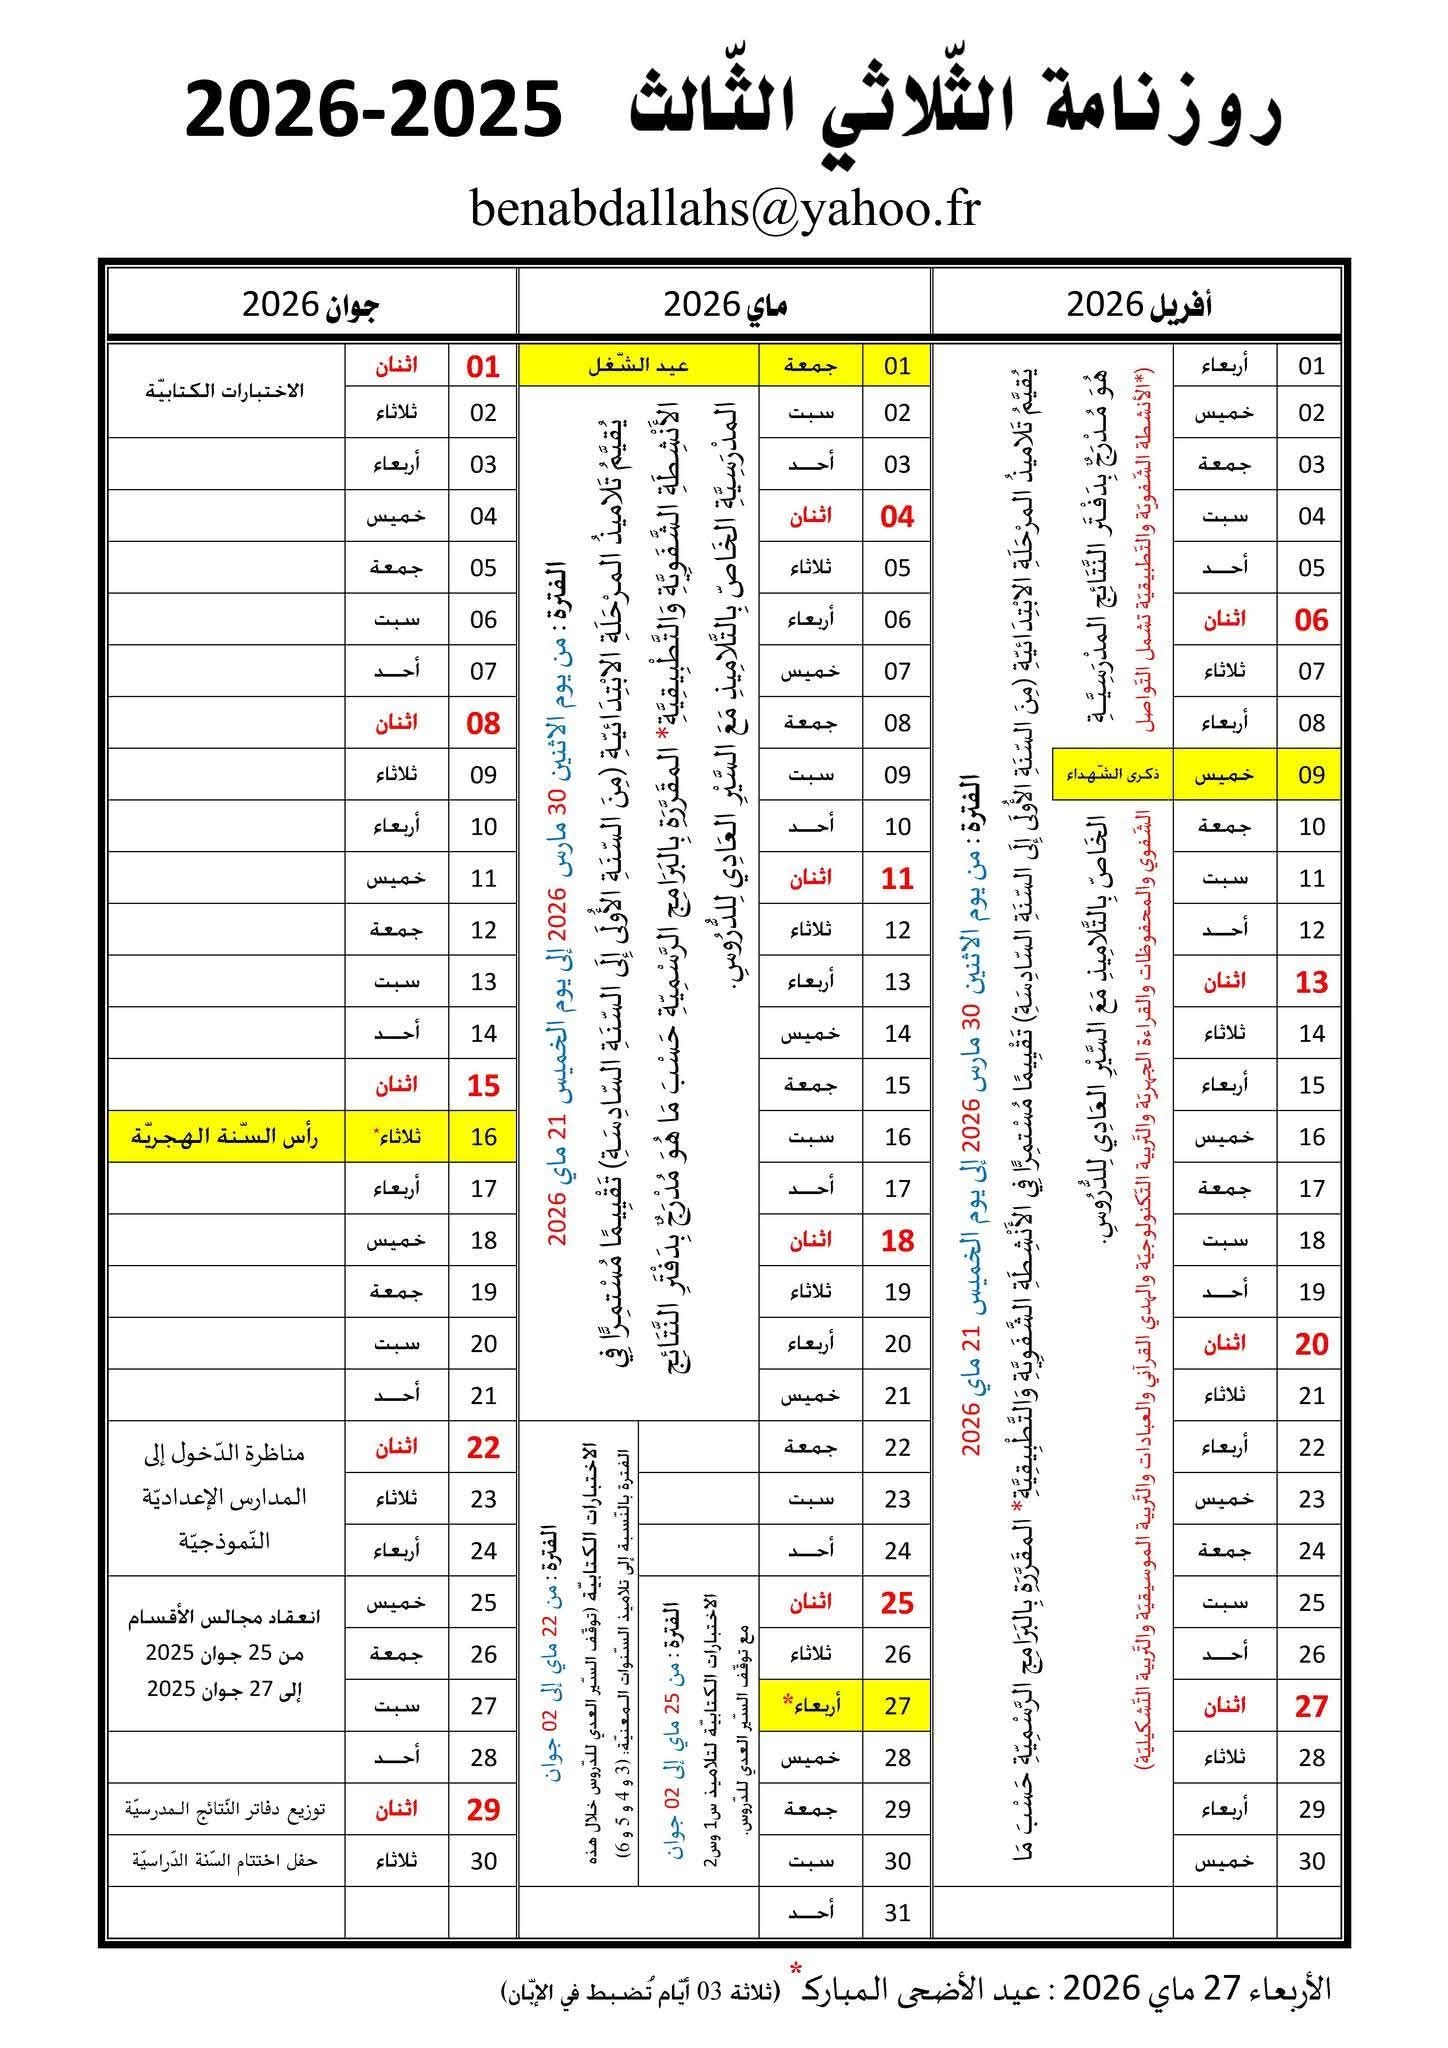 روزنامة الثّلاثي الثّالث 2025-2026
benabdallahs@yahoo.fr
أفريل 2026
01 أربعاء
02 خميس
03 جمعة
04 سبت
05 أحـــد
06 اثنان
07 ثلاثاء
08 أربعاء
09 خميس ذكرى الشّهداء
10 جمعة
11 سبت
12 أحـــد
13 اثنان
14 ثلاثاء
15 أربعاء
16 خميس
17 جمعة
18 سبت
19 أحـــد
20 اثنان
21 ثلاثاء
22 أربعاء
23 خميس
24 جمعة
25 سبت
26 أحـــد
27 اثنان
28 ثلاثاء
29 أربعاء
30 خميس
الفترة : من يوم الاثنين 30 مارس 2026 إلى يوم الخميس 21 ماي 2026
يُقيَّمُ تَلاميذُ المرْحَلَةِ الابْتِدَائيّةِ (مِنَ السّنَةِ الأُولَى إلَى السّنَةِ السّادِسَةِ) تَقْيِيمًا مُسْتمِرًّا فِي الأَنْشِطَةِ الشَّفَوِيَّةِ وَالتَّطْبِيقِيَّةِ* المقَرَّرَةِ بِالبَرَامِجِ الرَّسْمِيّةِ حَسْبَ مَا
هُوَ مُدْرَجٌ بِدَفْتَرِ النَّتَائِجِ المدْرَسِيَّةِ الخَاصّ بِالتَّلَامِيذِ مَعَ السَّيْرِ العَادِي لِلدُّرُوسِ.
(*الأنشطة الشّفويّة والتّطبيقيّة تشمل التّواصل الشّفوي والمحفوظات والقراءة الجهريّة والتّربية التّكنولوجيّة والهدي القرآني والعبادات والتّربية الموسيقيّة والتّربية التّشكيليّة)
ماي 2026
01 جمعة عيد الشّغل
02 سبت
03 أحـــد
04 اثنان
05 ثلاثاء
06 أربعاء
07 خميس
08 جمعة
09 سبت
10 أحـــد
11 اثنان
12 ثلاثاء
13 أربعاء
14 خميس
15 جمعة
16 سبت
17 أحـــد
18 اثنان
19 ثلاثاء
20 أربعاء
21 خميس
22 جمعة
23 سبت
24 أحـــد
25 اثنان
26 ثلاثاء
27 أربعاء*
28 خميس
29 جمعة
30 سبت
31 أحـــد
الفترة : من يوم الاثنين 30 مارس 2026 إلى يوم الخميس 21 ماي 2026
يُقيَّمُ تَلاميذُ المرْحَلَةِ الابْتِدَائيّةِ (مِنَ السّنَةِ الأُولَى إلَى السّنَةِ السّادِسَةِ) تَقْيِيمًا مُسْتمِرًّا فِي
الأَنْشِطَةِ الشَّفَوِيَّةِ وَالتَّطْبِيقِيَّةِ* المقَرَّرَةِ بِالبَرَامِجِ الرَّسْمِيّةِ حَسْبَ مَا هُوَ مُدْرَجٌ بِدَفْتَرِ النَّتَائِجِ
المدْرَسِيَّةِ الخَاصّ بِالتَّلَامِيذِ مَعَ السَّيْرِ العَادِي لِلدُّرُوسِ.
الفترة : من 22 ماي إلى 02 جوان
الاختبارات الكتابيّة (توقّف السّير العدي للدّروس خلال هذه
الفترة بالنّسبة إلى تلاميذ السّنوات المعنيّة: (3 و 4 و 5 و 6)
الفترة : من 25 ماي إلى 02 جوان
الاختبارات الكتابيّة لتلاميذ س1 وس2
مع توقّف السّير العدي للدّروس.
جوان 2026
01 اثنان
02 ثلاثاء
الاختبارات الكتابيّة
03 أربعاء
04 خميس
05 جمعة
06 سبت
07 أحـــد
08 اثنان
09 ثلاثاء
10 أربعاء
11 خميس
12 جمعة
13 سبت
14 أحـــد
15 اثنان
16 ثلاثاء* رأس السّنة الهجريّة
17 أربعاء
18 خميس
19 جمعة
20 سبت
21 أحـــد
22 اثنان
23 ثلاثاء
24 أربعاء
مناظرة الدّخول إلى
المدارس الإعداديّة
النّموذجيّة
25 خميس
26 جمعة
27 سبت
انعقاد مجالس الأقسام
من 25 جوان 2025
إلى 27 جوان 2025
28 أحـــد
29 اثنان توزيع دفاتر النّتائج المدرسيّة
30 ثلاثاء حفل اختتام السّنة الدّراسيّة
الأربعاء 27 ماي 2026 : عيد الأضحى المبارك* (ثلاثة 03 أيّام تُضبط في الإبّان)